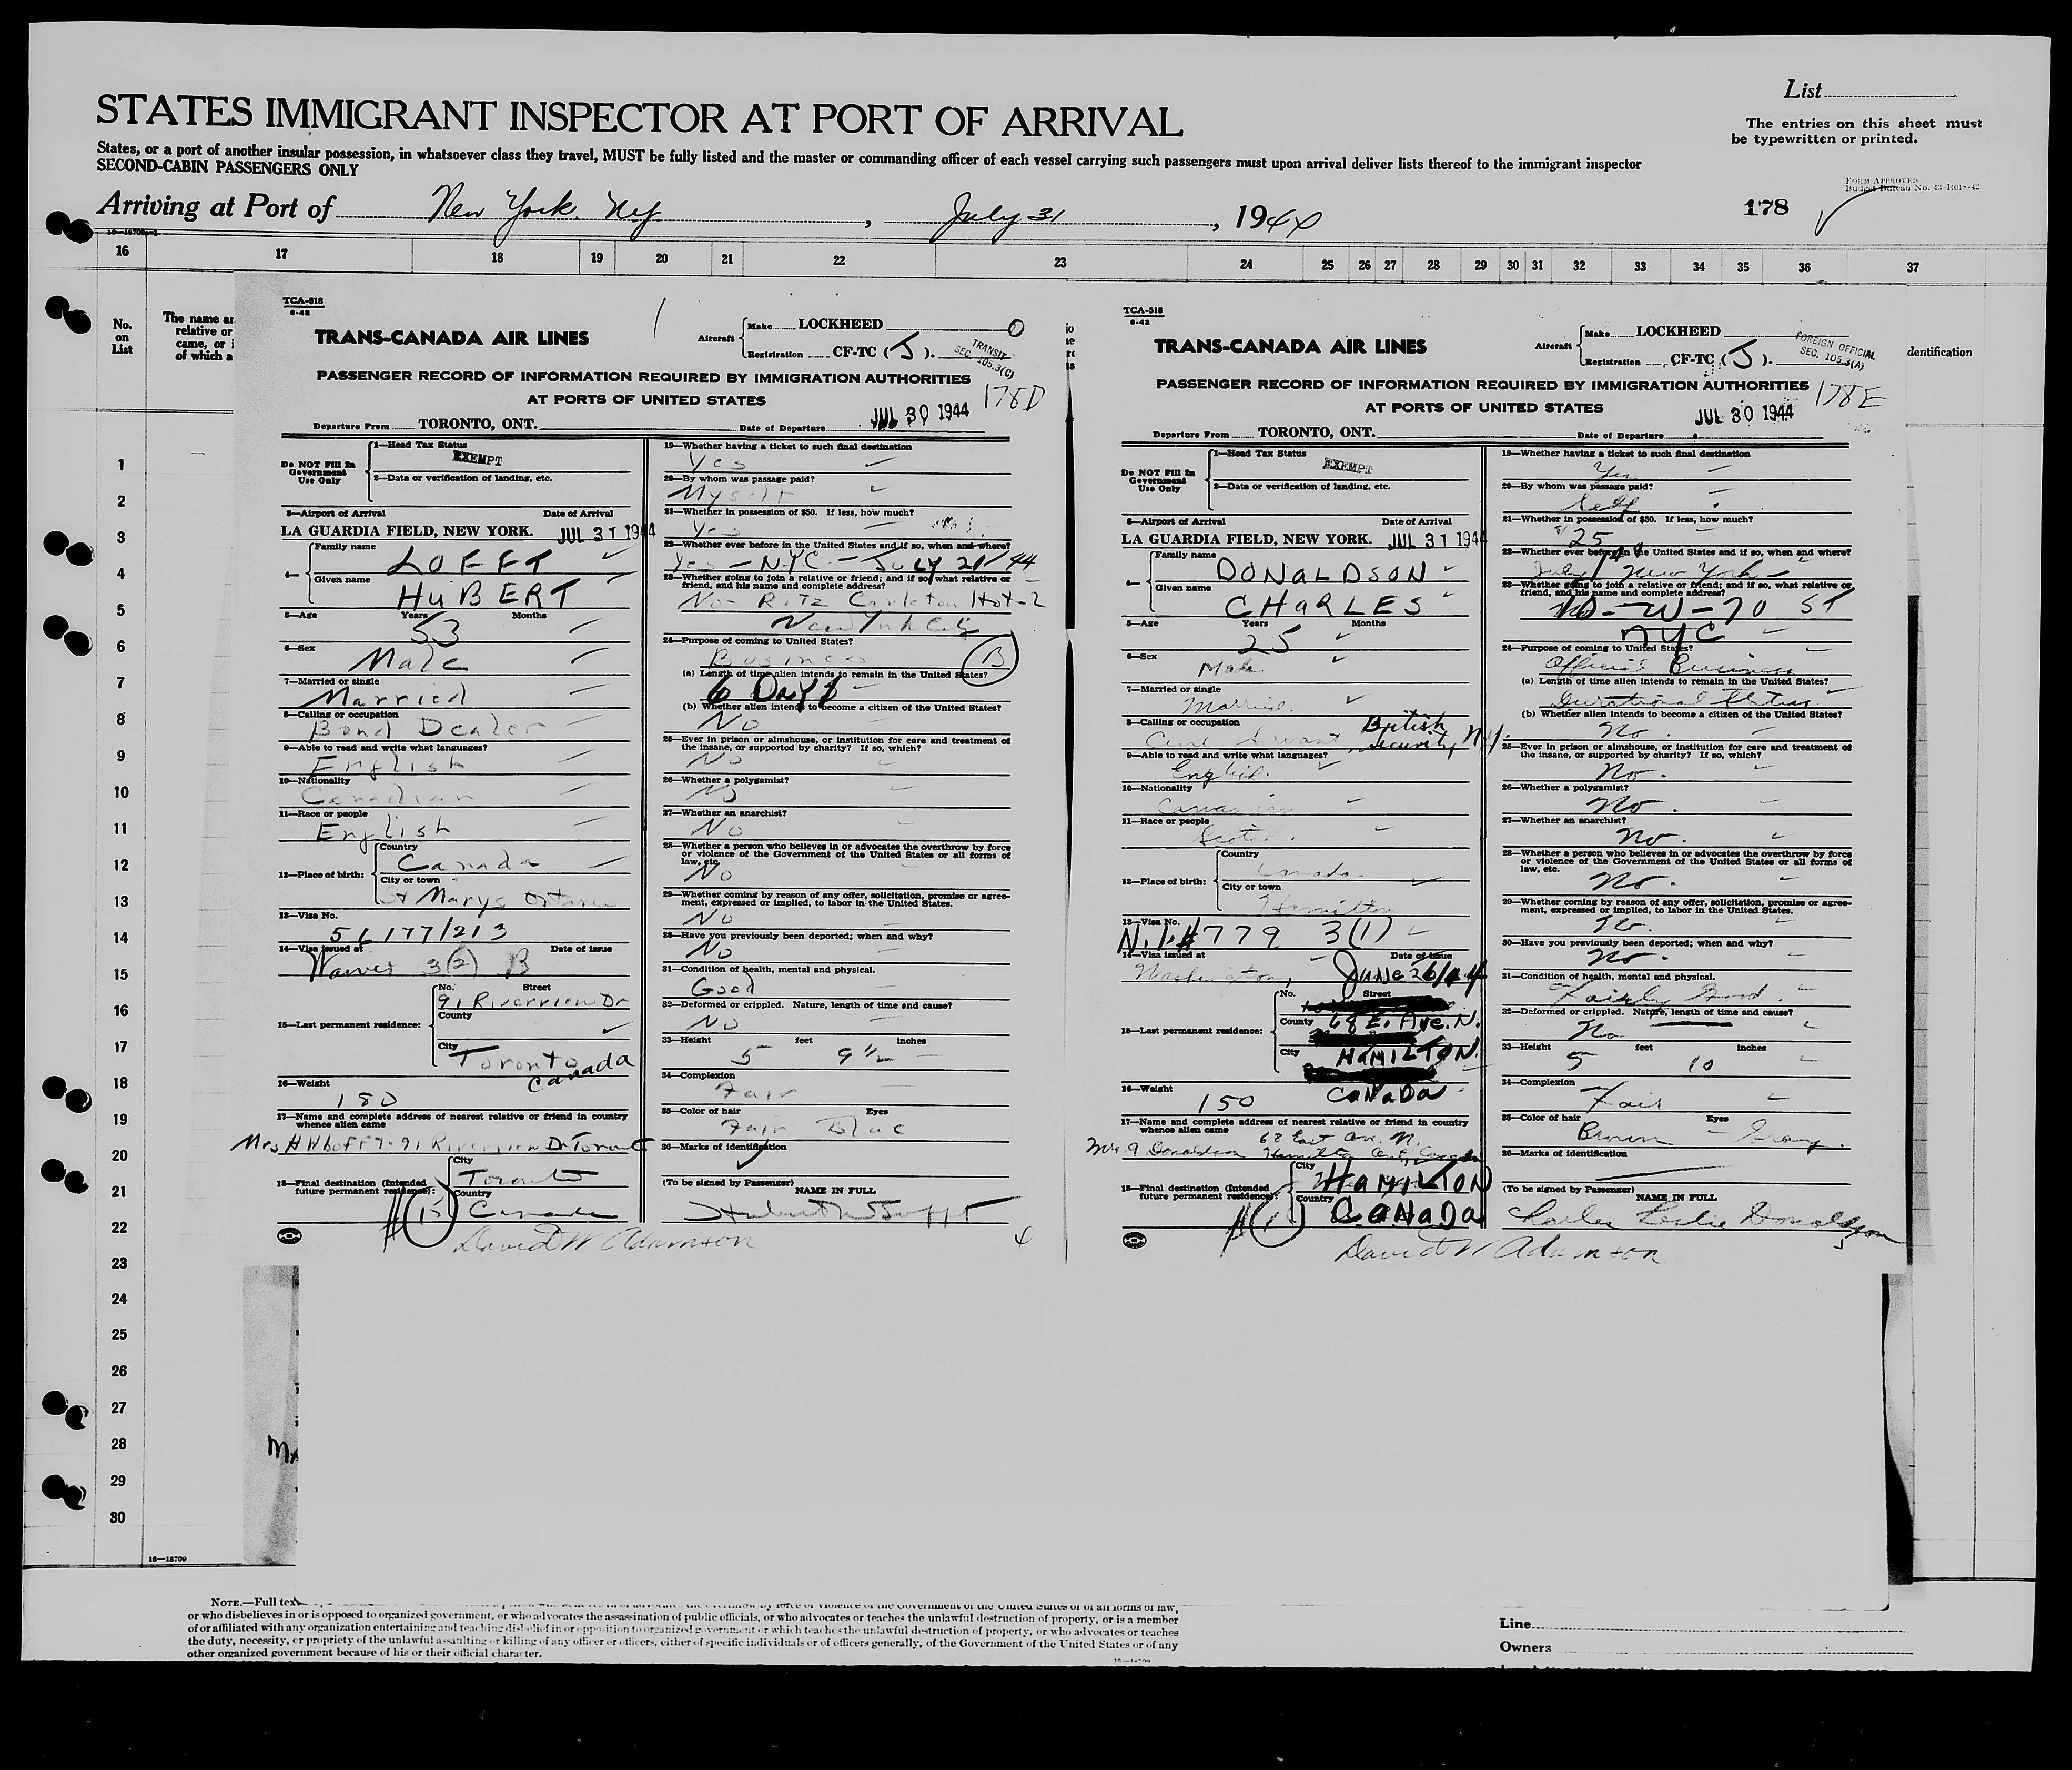 List
STATES IMMIGRANT INSPECTOR AT PORT OF ARRIVAL
The entries on this sheet must
be typewritten or printed.
States, or a port of another insular possession, in whatsoever class they travel, MUST be fully listed and the master or commanding officer of each vessel carrying such passengers must upon arrival deliver lists thereof to the immigrant inspector
SECOND-CABIN PASSENGERS ONLY
Form Approved
Budget Bureau No. 43-R018-42
Arriving at Port of New York. NY, July 31, 1944
178
16 17 18 19 20 21 22 23 24 25 26 27 28 29 30 31 32 33 34 35 36 37
No.
on
List
The name an
relative or
came, or i
of which a
dentification
1
2
3
4
5
6
7
8
9
10
11
12
13
14
15
16
17
18
19
20
21
22
23
24
25
26
27
28
29
30
TCA-518
6-42
TRANS-CANADA AIR LINES
Aircraft Make LOCKHEED
Registration CF-TC (J).
TRANSIT
SEC. 105.3(C)
PASSENGER RECORD OF INFORMATION REQUIRED BY IMMIGRATION AUTHORITIES
AT PORTS OF UNITED STATES
178D
Departure From TORONTO, ONT. Date of Departure JUL 30 1944
Do NOT Fill In
Government
Use Only
1—Head Tax Status
EXEMPT
2—Data or verification of landing, etc.
3—Airport of Arrival Date of Arrival
LA GUARDIA FIELD, NEW YORK. JUL 31 1944
4— Family name LOFFT
Given name HUBERT
5—Age Years 53 Months
6—Sex Male
7—Married or single
Married
8—Calling or occupation
Bond Dealer
9—Able to read and write what languages?
English
10—Nationality
Canadian
11—Race or people
English
12—Place of birth: Country Canada
City or town
St Marys Ontario
13—Visa No.
14—Visa issued at Date of issue
Waiver 3(2) B
15—Last permanent residence:
No. Street
91 Riverview Dr
County
City
Toronto
Canada
16—Weight
180
17—Name and complete address of nearest relative or friend in country
whence alien came
Mrs H W Lofft-91 Riverview Dr Toronto
18—Final destination (Intended
future permanent residence):
City
Toronto
Country
Canada
David W Adamson
19—Whether having a ticket to such final destination
Yes
20—By whom was passage paid?
Myself
21—Whether in possession of $50. If less, how much?
Yes
22—Whether ever before in the United States and if so, when and where?
Yes - N.Y.C - July 21/44
23—Whether going to join a relative or friend; and if so, what relative or
friend, and his name and complete address?
No - Ritz Carleton Hotel
New York City
24—Purpose of coming to United States?
Business B
(a) Length of time alien intends to remain in the United States?
6 Days
(b) Whether alien intends to become a citizen of the United States?
No
25—Ever in prison or almshouse, or institution for care and treatment of
the insane, or supported by charity? If so, which?
No
26—Whether a polygamist?
No
27—Whether an anarchist?
No
28—Whether a person who believes in or advocates the overthrow by force
or violence of the Government of the United States or all forms of
law, etc.
No
29—Whether coming by reason of any offer, solicitation, promise or agree-
ment, expressed or implied, to labor in the United States.
No
30—Have you previously been deported; when and why?
No
31—Condition of health, mental and physical.
Good
32—Deformed or crippled. Nature, length of time and cause?
No
33—Height 5 feet 9½ inches
34—Complexion
Fair
35—Color of hair Eyes
Fair Blue
36—Marks of identification
(To be signed by Passenger)
NAME IN FULL
Hubert W Lofft
TCA-518
6-42
TRANS-CANADA AIR LINES
Aircraft Make LOCKHEED
Registration CF-TC (J).
FOREIGN OFFICIAL
SEC. 105.3(A)
PASSENGER RECORD OF INFORMATION REQUIRED BY IMMIGRATION AUTHORITIES
AT PORTS OF UNITED STATES
178E
Departure From TORONTO, ONT. Date of Departure JUL 30 1944
Do NOT Fill In
Government
Use Only
1—Head Tax Status
EXEMPT
2—Data or verification of landing, etc.
3—Airport of Arrival Date of Arrival
LA GUARDIA FIELD, NEW YORK. JUL 31 1944
4— Family name
DONALDSON
Given name
CHARLES
5—Age Years 25 Months
6—Sex
Male
7—Married or single
Married.
8—Calling or occupation
Civil Servant British Security N.Y.
9—Able to read and write what languages?
English.
10—Nationality
Canadian
11—Race or people
Scotch.
12—Place of birth: Country
Canada
City or town
Hamilton
13—Visa No.
779 3(1)
14—Visa issued at Date of issue
Washington, June 26/44
15—Last permanent residence:
No. Street
County 68 E. Ave. N.
City HAMILTON
CANADA
16—Weight
150
17—Name and complete address of nearest relative or friend in country
whence alien came
68 East Ave. N.
Donaldson Hamilton Ont, Canada
18—Final destination (Intended
future permanent residence):
City
HAMILTON
Country
CANADA
David W Adamson
19—Whether having a ticket to such final destination
Yes
20—By whom was passage paid?
Self
21—Whether in possession of $50. If less, how much?
25
22—Whether ever before in the United States and if so, when and where?
July New York
23—Whether going to join a relative or friend; and if so, what relative or
friend, and his name and complete address?
10 - W - 70 ST
NYC
24—Purpose of coming to United States?
Official Business
(a) Length of time alien intends to remain in the United States?
(b) Whether alien intends to become a citizen of the United States?
No.
25—Ever in prison or almshouse, or institution for care and treatment of
the insane, or supported by charity? If so, which?
No.
26—Whether a polygamist?
No.
27—Whether an anarchist?
No.
28—Whether a person who believes in or advocates the overthrow by force
or violence of the Government of the United States or all forms of
law, etc.
No.
29—Whether coming by reason of any offer, solicitation, promise or agree-
ment, expressed or implied, to labor in the United States.
No.
30—Have you previously been deported; when and why?
No.
31—Condition of health, mental and physical.
Fairly Good.
32—Deformed or crippled. Nature, length of time and cause?
No
33—Height 5 feet 10 inches
34—Complexion
Fair
35—Color of hair Eyes
Brown - Gray.
36—Marks of identification
(To be signed by Passenger)
NAME IN FULL
Charles Leslie Donaldson
16—18709
NOTE.—Full tex
or who disbelieves in or is opposed to organized government, or who advocates the assassination of public officials, or who advocates or teaches the unlawful destruction of property, or is a member
of or affiliated with any organization entertaining and teaching disbelief in or opposition to organized government or which teaches the unlawful destruction of property, or who advocates or teaches
the duty, necessity, or propriety of the unlawful assaulting or killing of any officer or officers, either of specific individuals or of officers generally, of the Government of the United States or of any
other organized government because of his or their official character.
Line
Owners